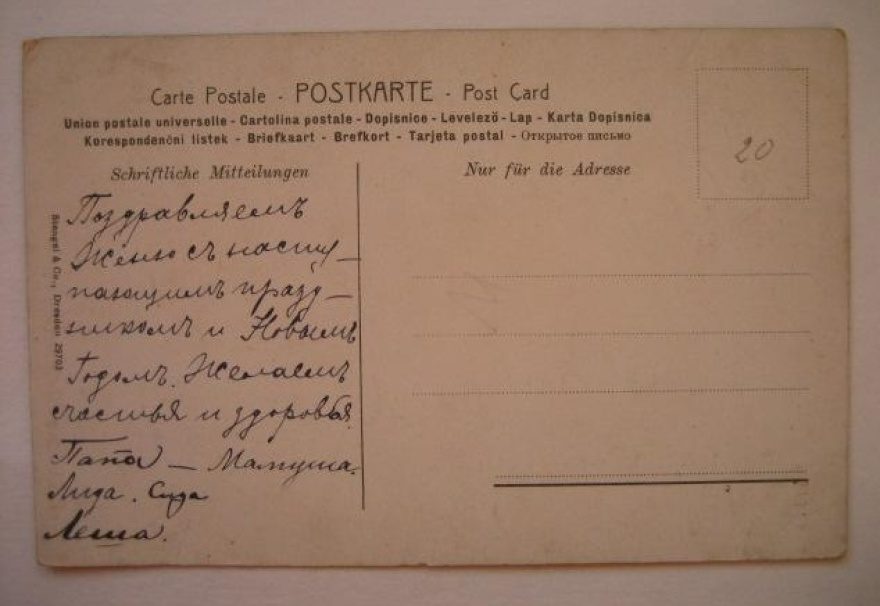 Carte Postale - POSTKARTE - Post Card
Union postale universelle - Cartolina postale - Dopisnice - Levelező - Lap - Karta Dopisnica
Korespondenčni listek - Briefkaart - Brefkort - Tarjeta postal - Открытое письмо
Schriftliche Mitteilungen
Nur für die Adresse
20
Stengel & Co., Dresden 29703
Поздравляемъ
Женю съ насту-
пающимъ празд-
никомъ и Новымъ
Годомъ. Желаемъ
счастья и здоровья.
Папа — Мамуша.
Лида.
Леша.